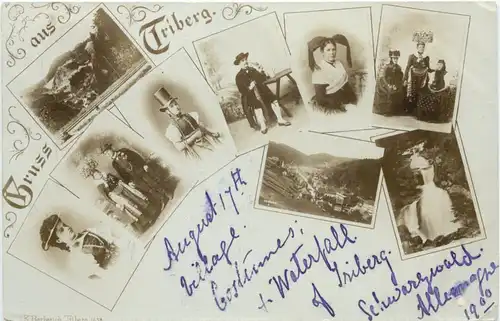 Gruss
aus
Triberg.
August 17th
Village.
Costumes;
+ Waterfall
of Triberg.
Schwarzwald
Allemagne
1900